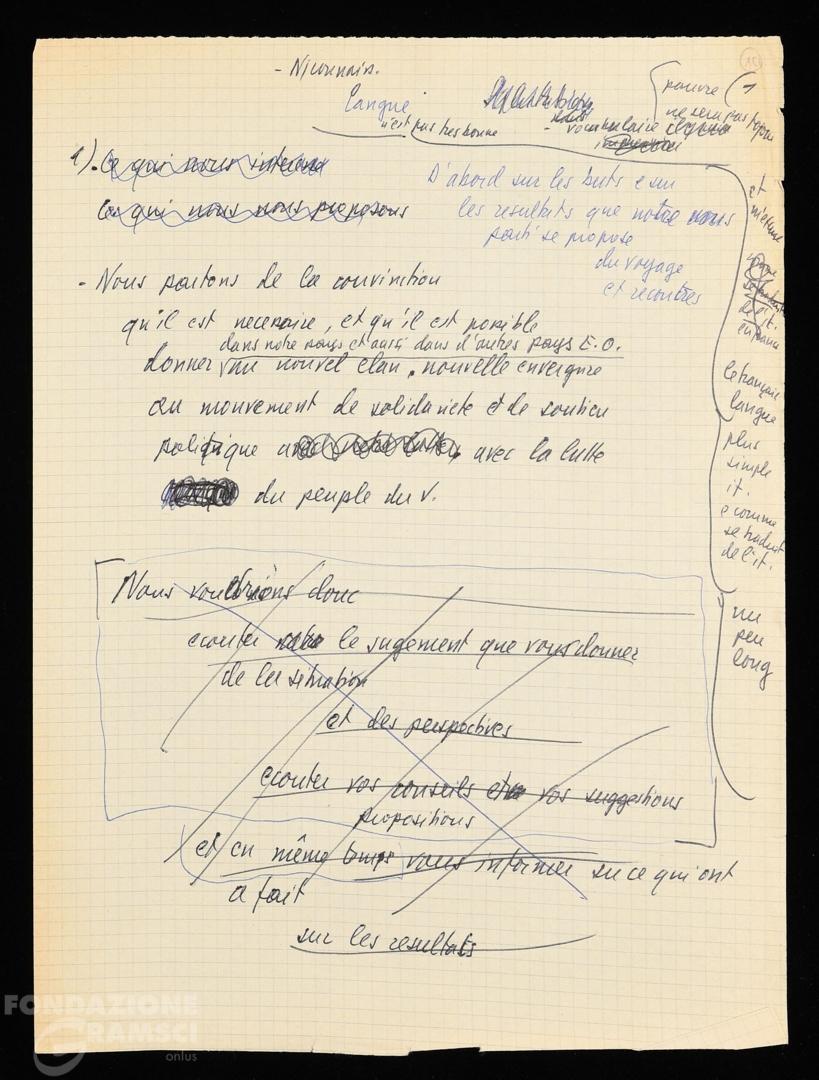 15
- Niconnais.
langue
n'est pas tres bonne
- vocabulaire
pauvre
ne sera pas
1). Ce qui nous interesse
Ce qui nous nous proposons
D'abord sur les buts e sur
les resultats que notre
parti se propose
du voyage
et recontres
- Nous partons de la convinction
qu'il est necessaire, et qu'il est possible
dans notre pays et aussi dans d'autres pays E.O.
donner un nouvel elan, nouvelle envergure
au mouvement de solidariete et de soutien
politique avec la lutte
du peuple du V.
et
le français
langue
plus
simple
it.
e comme
se traduit
de l'it.
un
peu
long
Nous voudrions donc
ecouter le jugement que vous donner
de la situation
et des perspectives
ecouter vos conseils et vos suggestions
propositions
et en même temps vous informer su ce qui ont
a fait
sur les resultats
FONDAZIONE
GRAMSCI
onlus